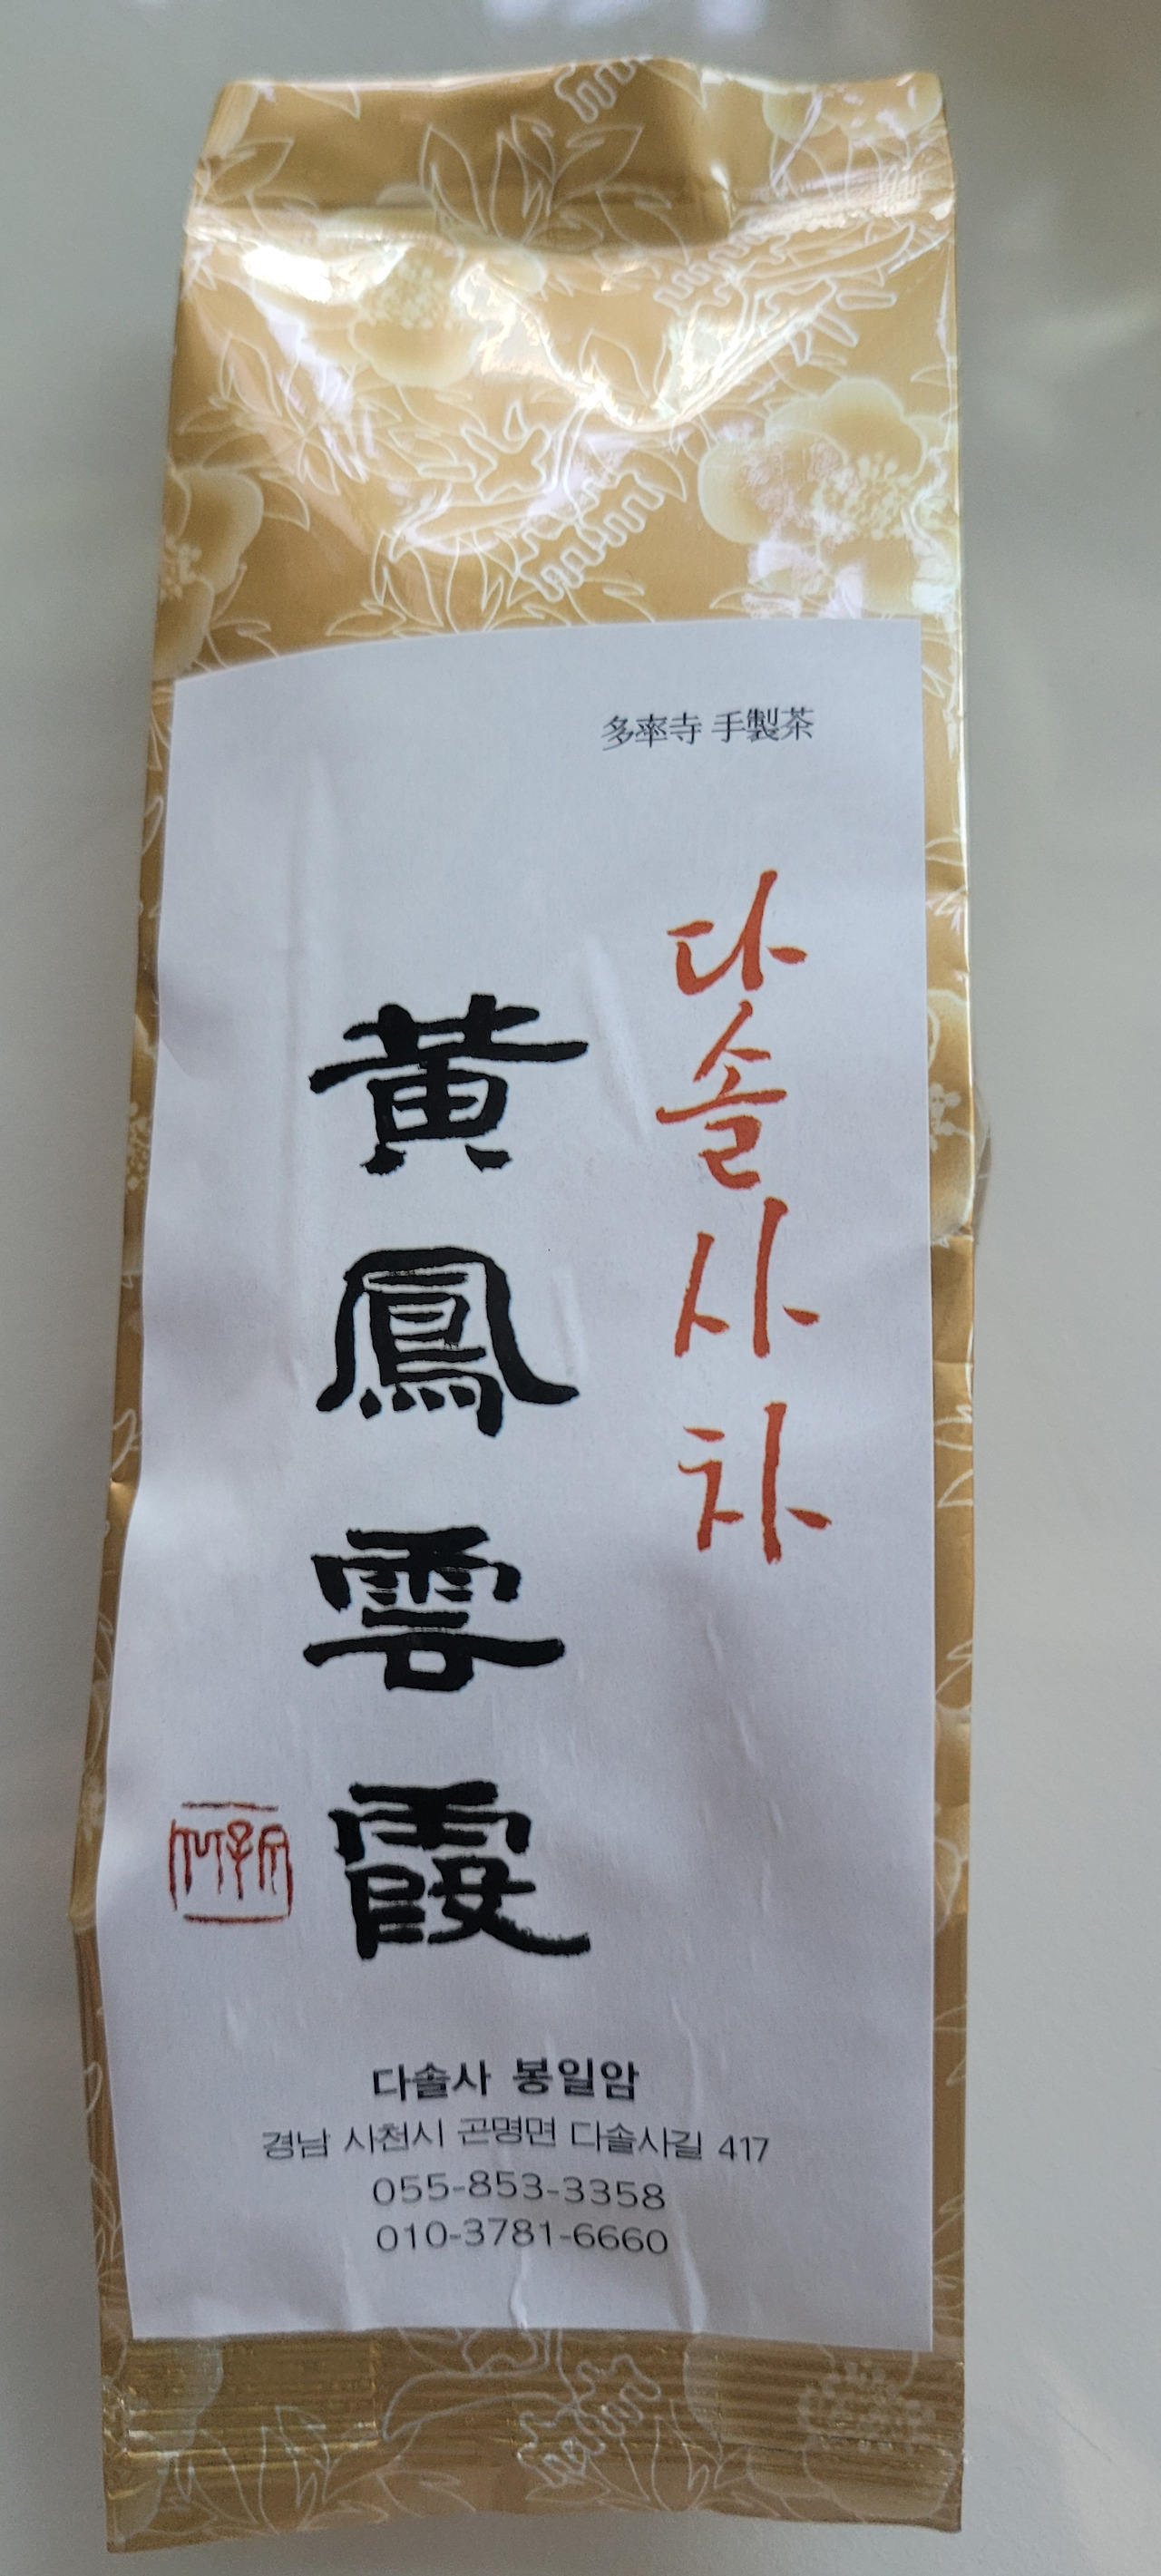 多率寺 手製茶
다솔사차
黃鳳雲霞
다솔사 봉일암
경남 사천시 곤명면 다솔사길 417
055-853-3358
010-3781-6660